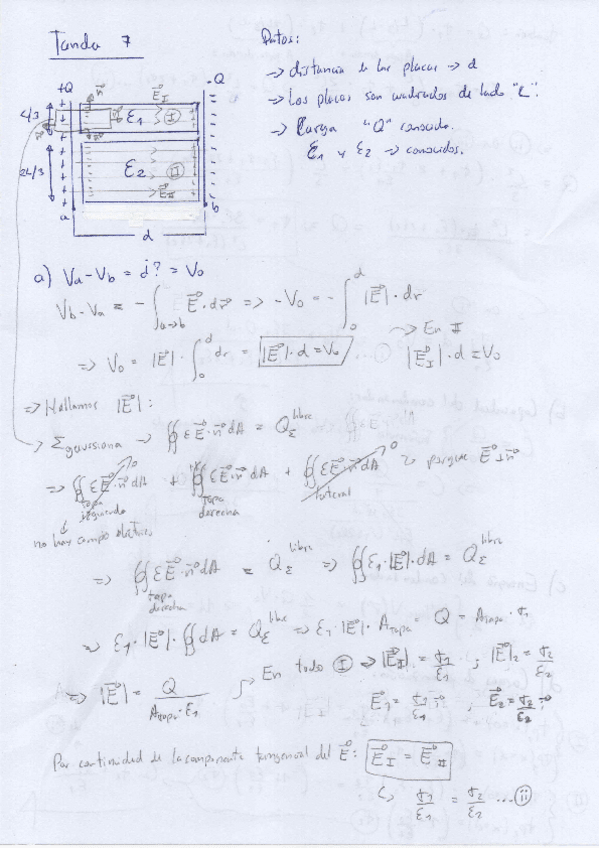 Tanda 7
Datos:
→ distancia de las placas → d
→ Las placas son cuadradas de lado "L".
→ Carga "Q" conocida.
ε1 y ε2 → conocidos.
+Q
-Q
L/3
2L/3
E⃗I
ε1
I
ε2
II
E⃗II
n⃗
a
b
d
a) Va - Vb = ¿? = V0
Vb - Va = - ∫a→b E⃗·dr⃗ => -V0 = - ∫0^d |E⃗|·dr
=> V0 = |E⃗|·∫0^d dr = |E⃗|·d = V0
→ En II
|E⃗I|·d = V0
=> Hallamos |E⃗|:
→ Σgaussiana → ∯ εE⃗·n⃗dA = QΣ^libre
=> ∯ εE⃗·n⃗dA + ∯ εE⃗·n⃗dA + ∯ εE⃗·n⃗dA porque E⃗⊥n⃗
tapa izquierda
tapa derecha
lateral
0
0
no hay campo eléctrico
=> ∯ εE⃗·n⃗dA = QΣ^libre => ∯ ε1·|E⃗|·dA = QΣ^libre
tapa derecha
=> ε1·|E⃗|·∯dA = QΣ^libre => ε1·|E⃗|·Atapa = Q = Atapa·σ1
=> |E⃗| = Q / Atapa·ε1
En todo I => |E⃗I| = σ1/ε1 ; |E⃗|2 = σ2/ε2
E⃗1 = σ1/ε1 ; E⃗2 = σ2/ε2
Por continuidad de la componente tangencial del E⃗: E⃗I = E⃗II
↳ σ1/ε1 = σ2/ε2 ... ii